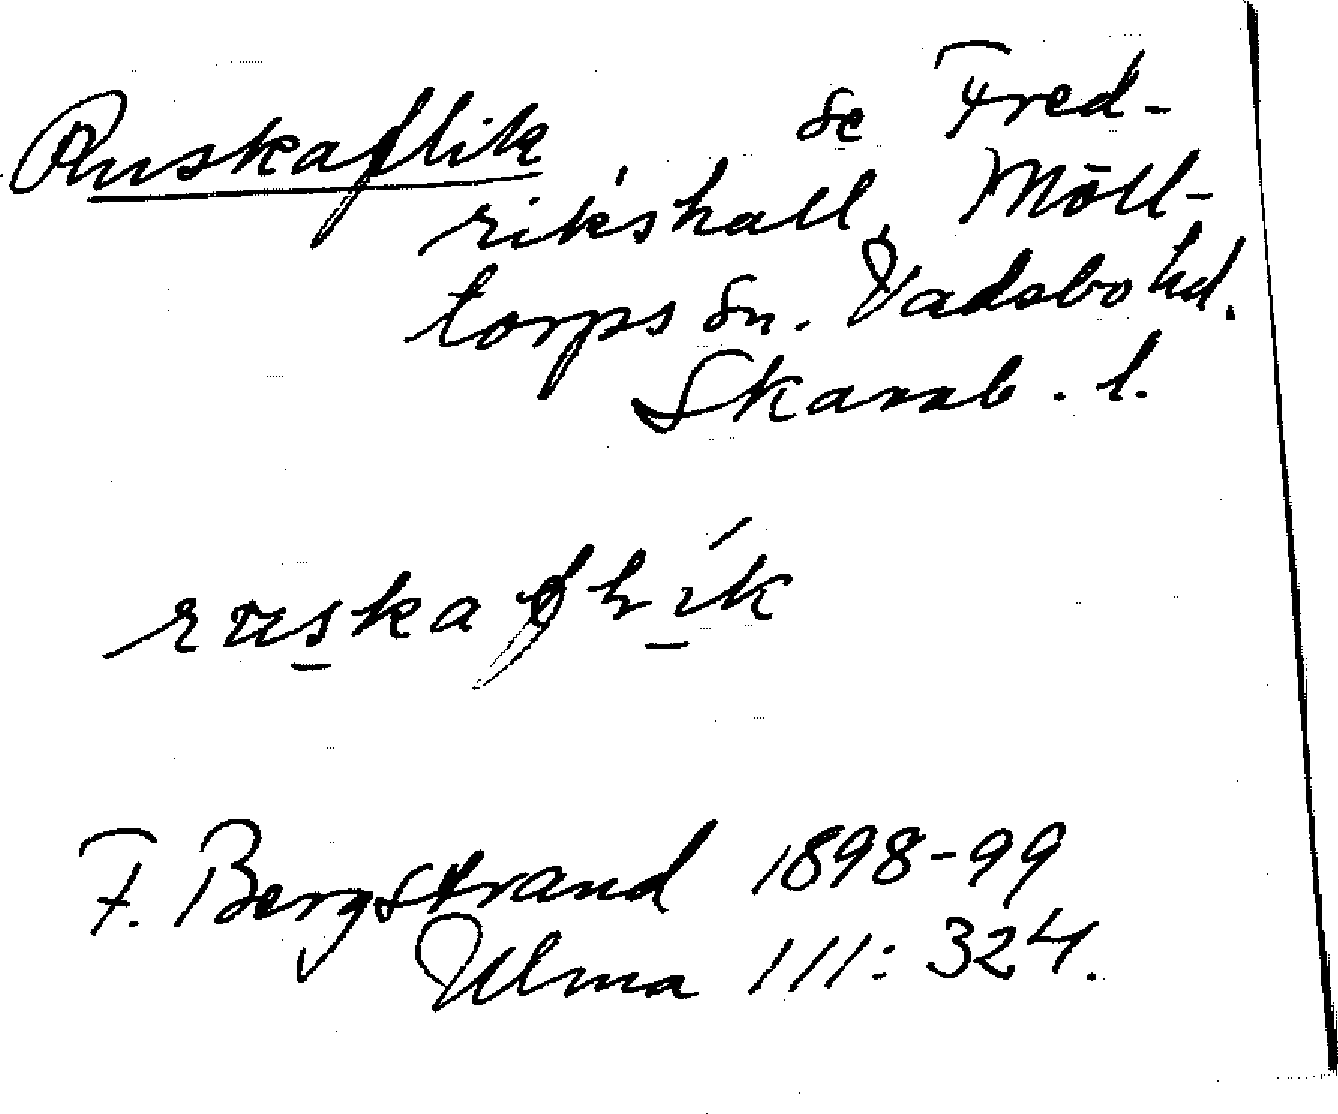 Ruskaflik se Fred-
rikshall, Möll-
torps sn. Vadsbo hd.
Skarab. l.
ruskaflik
F. Bergstrand 1898-99
Ulma 111:324.